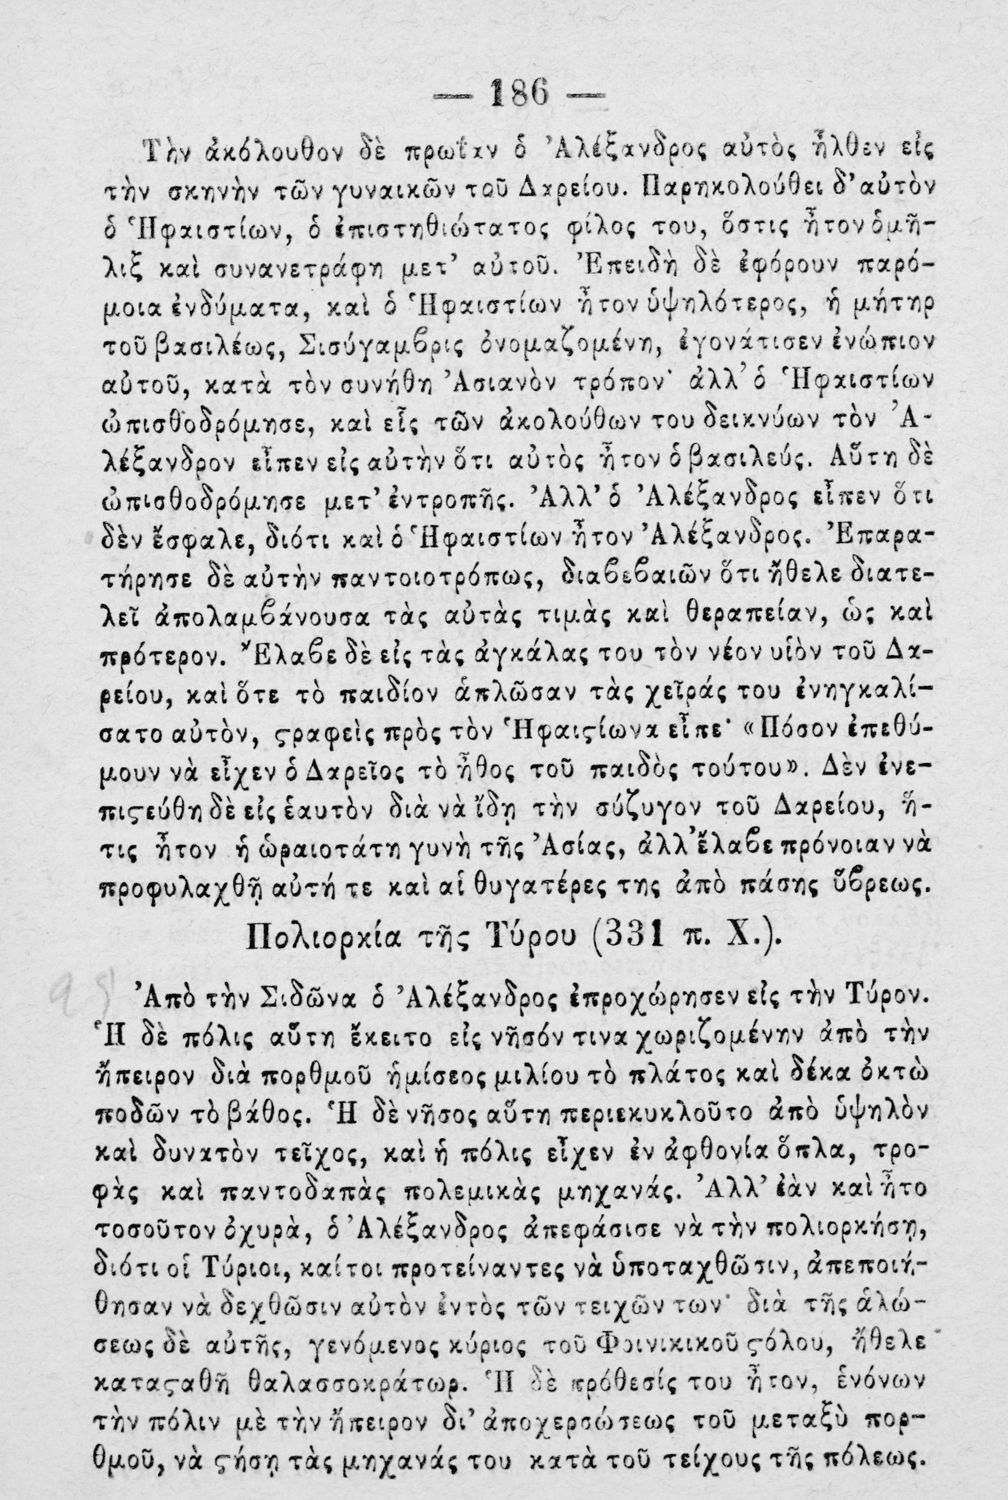 — 186 —
Τὴν ἀκόλουθον δὲ πρωΐαν ὁ Ἀλέξανδρος αὐτὸς ἦλθεν εἰς
τὴν σκηνὴν τῶν γυναικῶν τοῦ Δαρείου. Παρηκολούθει δ’ αὐτὸν
ὁ Ἡφαιστίων, ὁ ἐπιστηθιώτατος φίλος του, ὅστις ἦτον ὁμῆ-
λιξ καὶ συνανετράφη μετ’ αὐτοῦ. Ἐπειδὴ δὲ ἐφόρουν παρό-
μοια ἐνδύματα, καὶ ὁ Ἡφαιστίων ἦτον ὑψηλότερος, ἡ μήτηρ
τοῦ βασιλέως, Σισύγαμϐρις ὀνομαζομένη, ἐγονάτισεν ἐνώπιον
αὐτοῦ, κατὰ τὸν συνήθη Ἀσιανὸν τρόπον· ἀλλ’ ὁ Ἡφαιστίων
ὠπισθοδρόμησε, καὶ εἷς τῶν ἀκολούθων του δεικνύων τὸν Ἀ-
λέξανδρον εἶπεν εἰς αὐτὴν ὅτι αὐτὸς ἦτον ὁ βασιλεύς. Αὕτη δὲ
ὠπισθοδρόμησε μετ’ ἐντροπῆς. Ἀλλ’ ὁ Ἀλέξανδρος εἶπεν ὅτι
δὲν ἔσφαλε, διότι καὶ ὁ Ἡφαιστίων ἦτον Ἀλέξανδρος. Ἐπαρα-
τήρησε δὲ αὐτὴν παντοιοτρόπως, διαϐεϐαιῶν ὅτι ἤθελε διατε-
λεῖ ἀπολαμϐάνουσα τὰς αὐτὰς τιμὰς καὶ θεραπείαν, ὡς καὶ
πρότερον. Ἔλαϐε δὲ εἰς τὰς ἀγκάλας του τὸν νέον υἱὸν τοῦ Δα-
ρείου, καὶ ὅτε τὸ παιδίον ἁπλῶσαν τὰς χεῖράς του ἐνηγκαλί-
σατο αὐτὸν, ϛραφεὶς πρὸς τὸν Ἡφαιϛίωνα εἶπε· «Πόσον ἐπεθύ-
μουν νὰ εἶχεν ὁ Δαρεῖος τὸ ἦθος τοῦ παιδὸς τούτου». Δὲν ἐνε-
πιϛεύθη δὲ εἰς ἑαυτὸν διὰ νὰ ἴδῃ τὴν σύζυγον τοῦ Δαρείου, ἥ-
τις ἦτον ἡ ὡραιοτάτη γυνὴ τῆς Ἀσίας, ἀλλ’ ἔλαϐε πρόνοιαν νὰ
προφυλαχθῇ αὐτή τε καὶ αἱ θυγατέρες της ἀπὸ πάσης ὕϐρεως.
Πολιορκία τῆς Τύρου (331 π. Χ.).
Ἀπὸ τὴν Σιδῶνα ὁ Ἀλέξανδρος ἐπροχώρησεν εἰς τὴν Τύρον.
Ἡ δὲ πόλις αὕτη ἔκειτο εἰς νῆσόν τινα χωριζομένην ἀπὸ τὴν
ἤπειρον διὰ πορθμοῦ ἡμίσεος μιλίου τὸ πλάτος καὶ δέκα ὀκτὼ
ποδῶν τὸ βάθος. Ἡ δὲ νῆσος αὕτη περιεκυκλοῦτο ἀπὸ ὑψηλὸν
καὶ δυνατὸν τεῖχος, καὶ ἡ πόλις εἶχεν ἐν ἀφθονίᾳ ὅπλα, τρο-
φὰς καὶ παντοδαπὰς πολεμικὰς μηχανάς. Ἀλλ’ ἐὰν καὶ ἦτο
τοσοῦτον ὀχυρὰ, ὁ Ἀλέξανδρος ἀπεφάσισε νὰ τὴν πολιορκήσῃ,
διότι οἱ Τύριοι, καίτοι προτείναντες νὰ ὑποταχθῶσιν, ἀπεποιή-
θησαν νὰ δεχθῶσιν αὐτὸν ἐντὸς τῶν τειχῶν των· διὰ τῆς ἁλώ-
σεως δὲ αὐτῆς, γενόμενος κύριος τοῦ Φοινικικοῦ ϛόλου, ἤθελε
καταϛαθῆ θαλασσοκράτωρ. Ἡ δὲ πρόθεσίς του ἦτον, ἑνόνων
τὴν πόλιν μὲ τὴν ἤπειρον δι’ ἀποχερσώσεως τοῦ μεταξὺ πορ-
θμοῦ, νὰ ϛήσῃ τὰς μηχανάς του κατὰ τοῦ τείχους τῆς πόλεως.
95